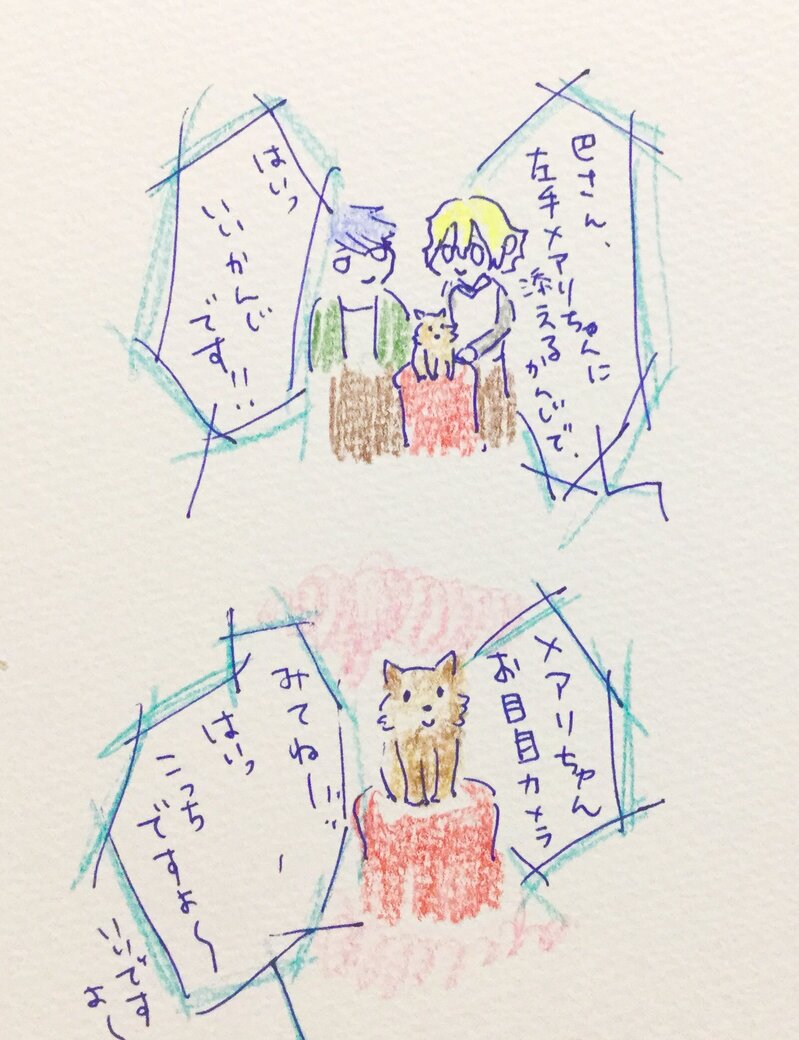 巴さん、
左手メアリちゃんに
添えるかんじで、
はいっ
いいかんじ
です!!
メアリちゃん
お目目カメラ
みてねー!!
はいっ
こっち
ですよ〜
いいです
よ〜